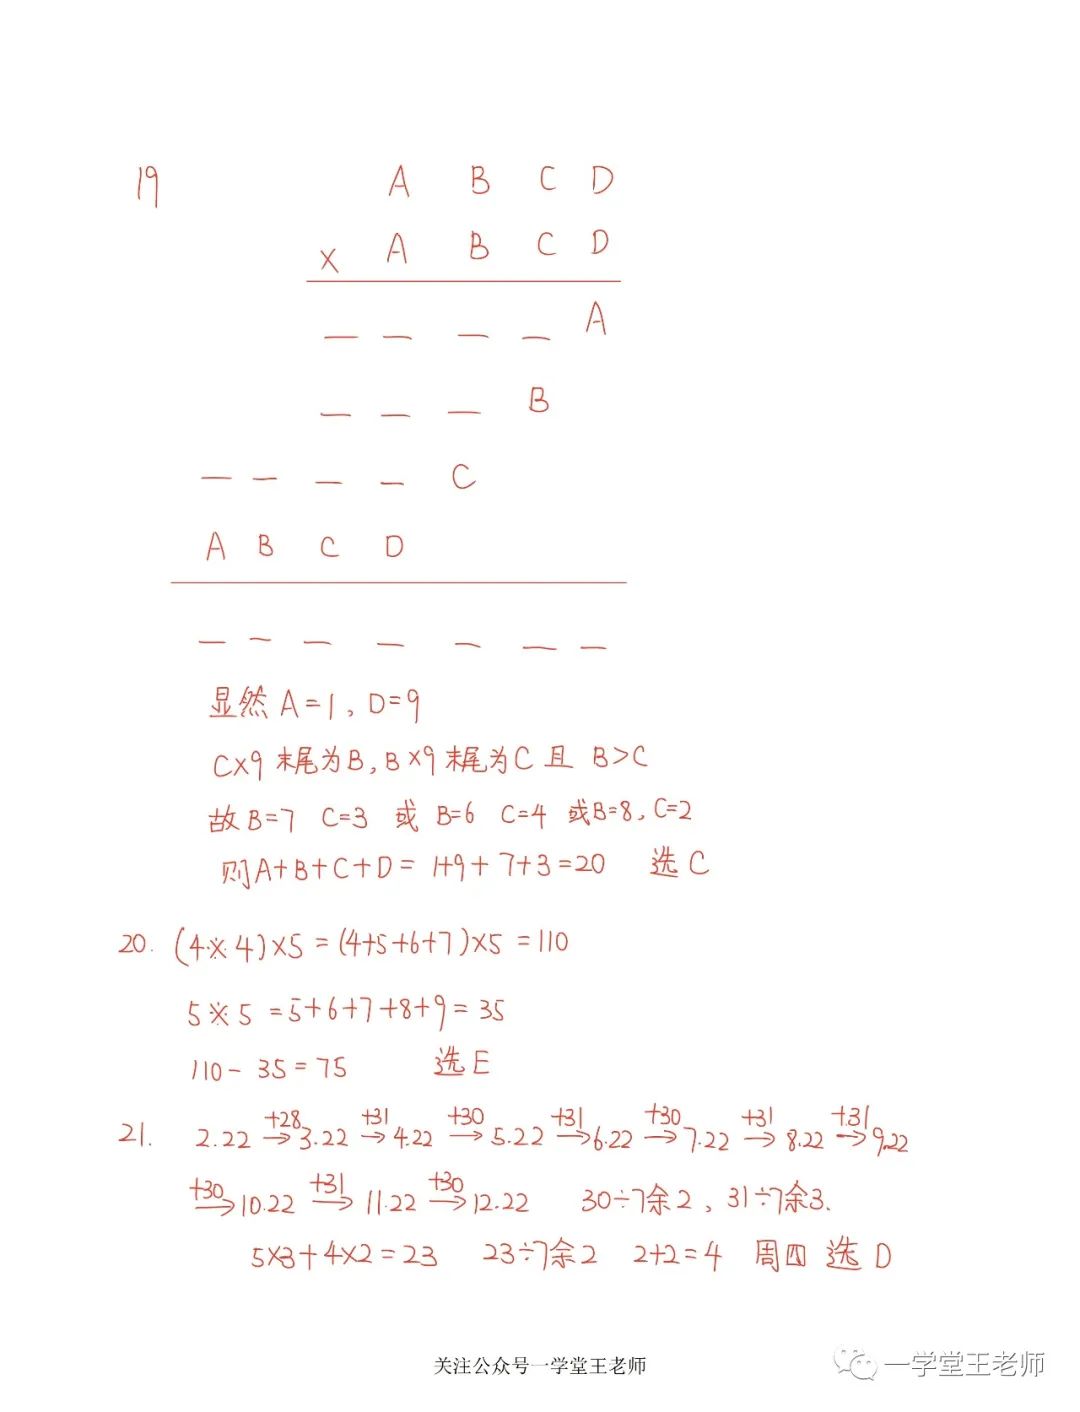 19 A B C D
× A B C D
— — — — A
— — — B
— — — — C
A B C D
— — — — — — —
显然 A=1, D=9
C×9 末尾为B, B×9 末尾为C 且 B>C
故 B=7 C=3 或 B=6 C=4 或B=8, C=2
则A+B+C+D= 1+9+7+3=20 选 C
20. (4※4)×5 = (4+5+6+7)×5 = 110
5※5 = 5+6+7+8+9 = 35
110 - 35 = 75 选 E
21. 2.22 +28→ 3.22 +31→ 4.22 +30→ 5.22 +31→ 6.22 +30→ 7.22 +31→ 8.22 +31→ 9.22
+30→ 10.22 +31→ 11.22 +30→ 12.22 30÷7余2, 31÷7余3.
5×3+4×2=23 23÷7余2 2+2=4 周四 选 D
关注公众号一学堂王老师
一学堂王老师